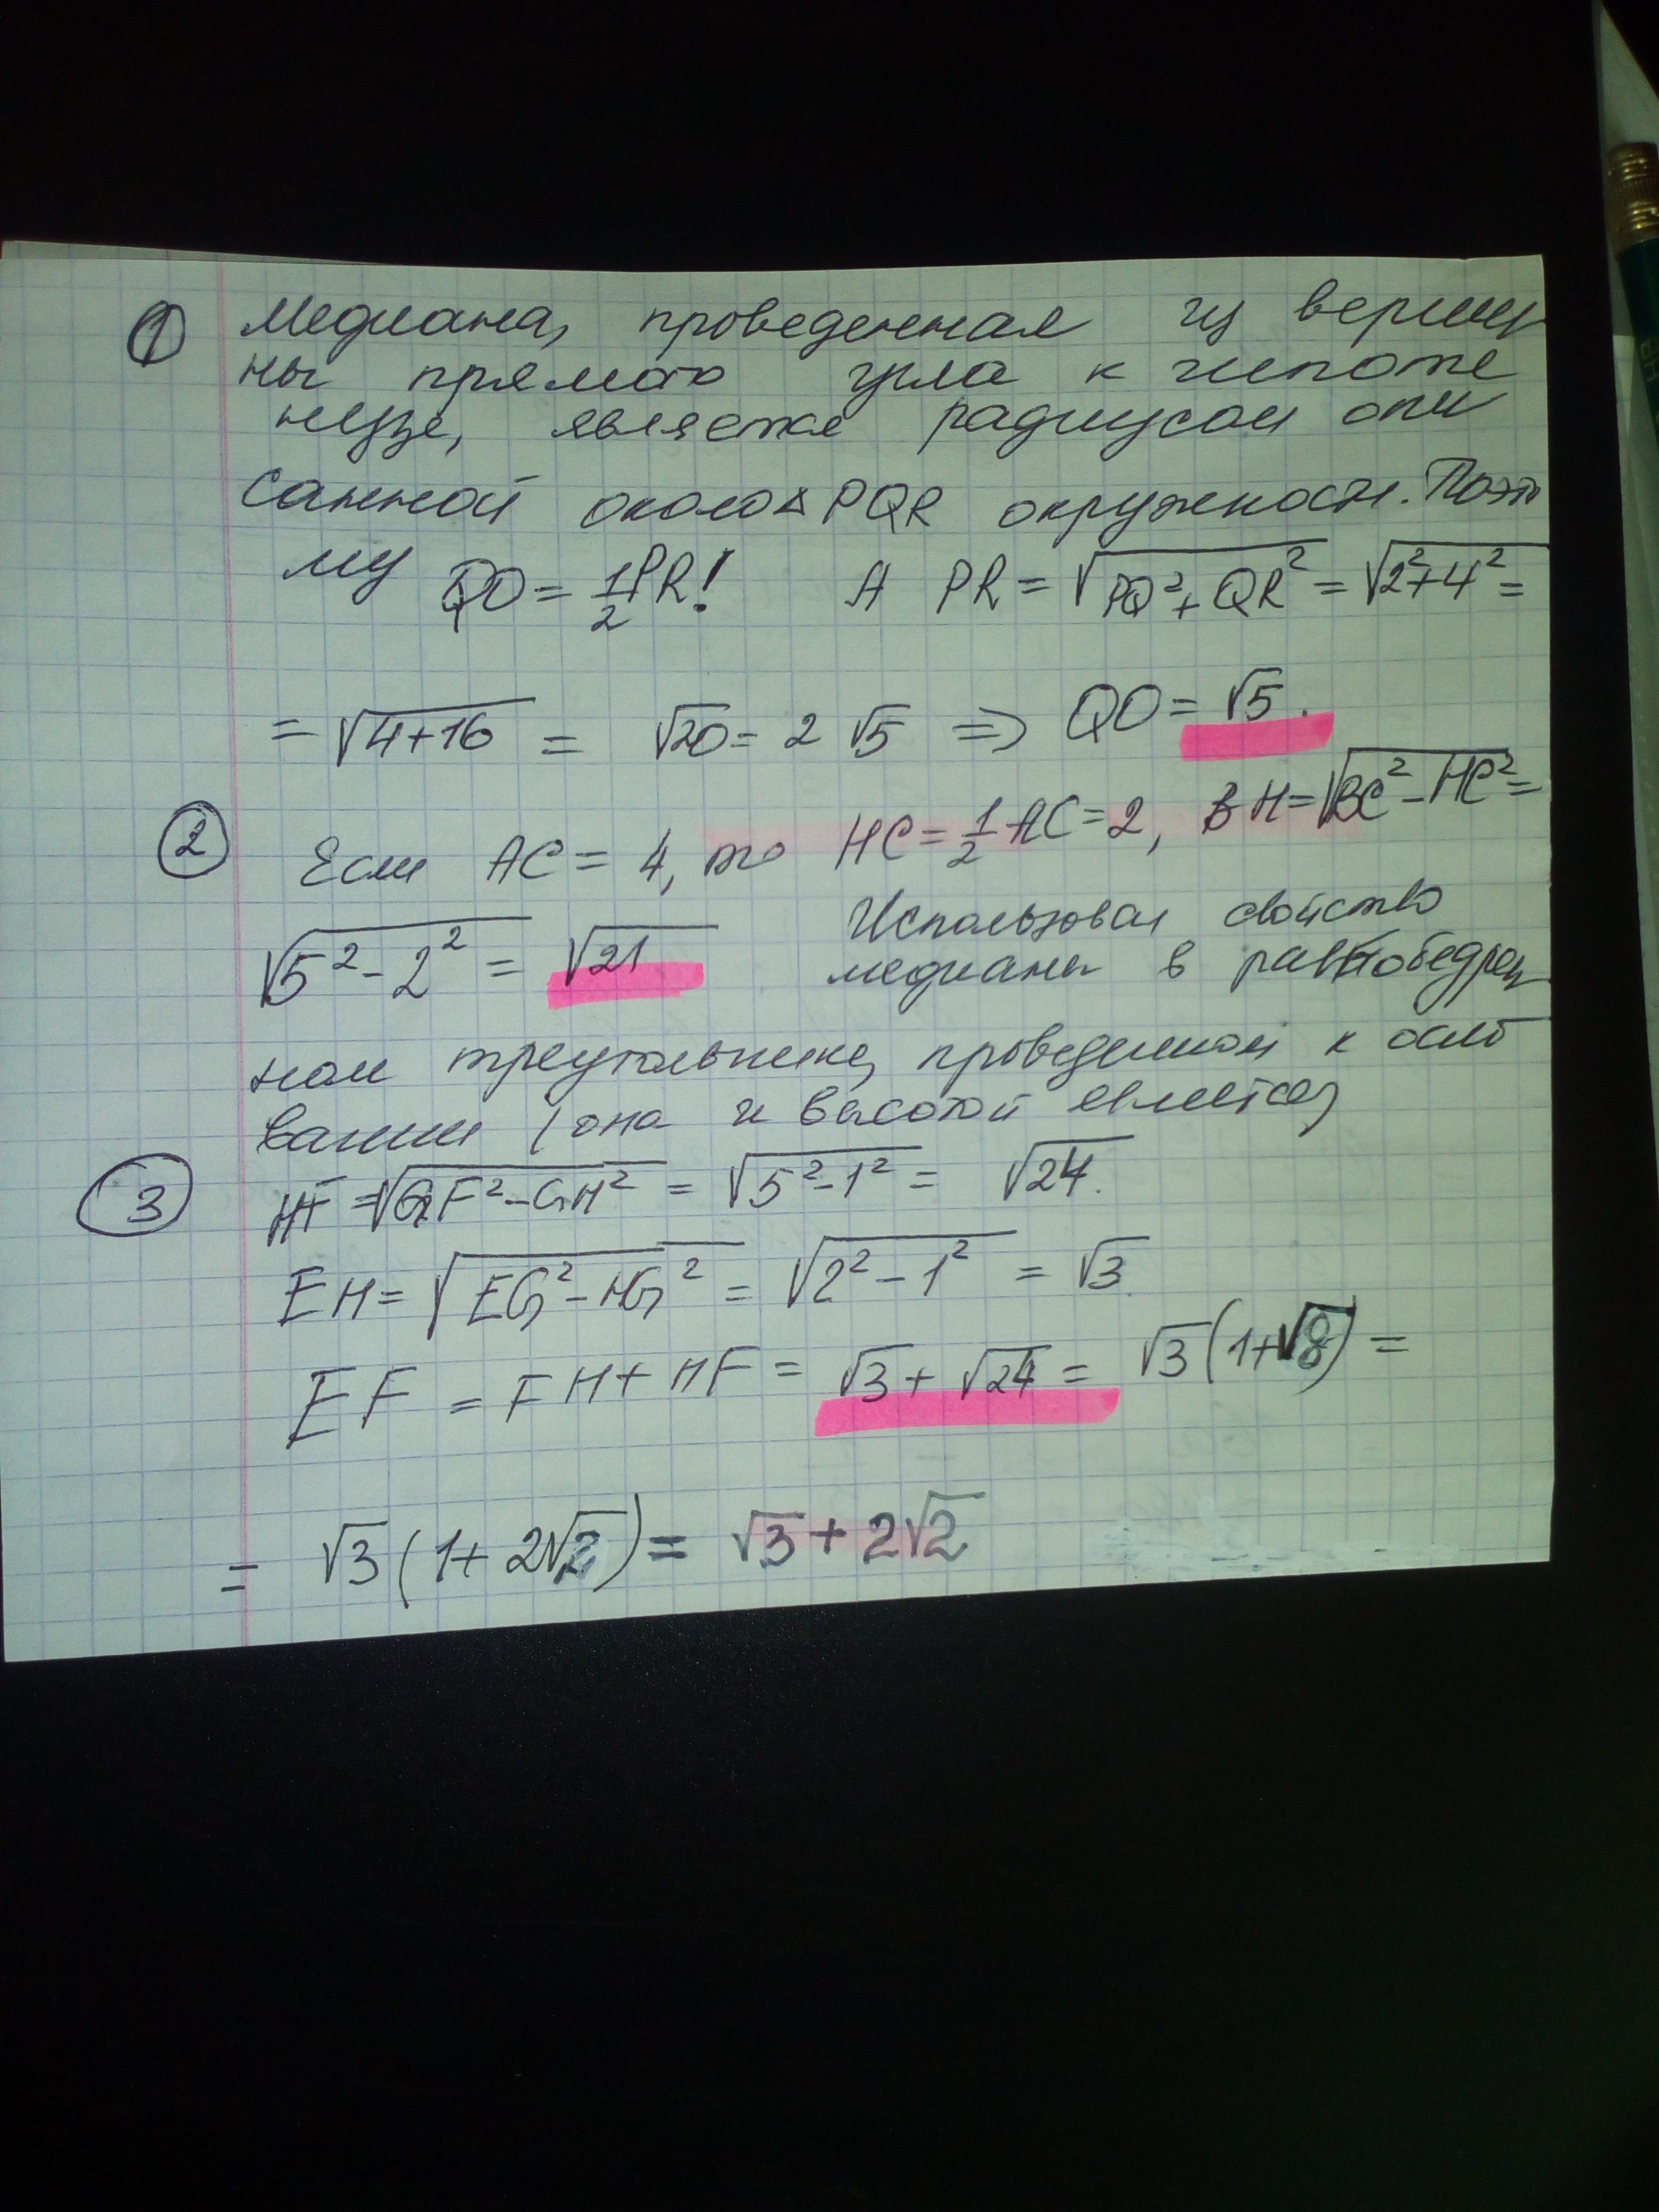 ① Медиана, проведенная из верши
ны прямого угла к гипоте
нузе, является радиусом опи
санной около △ PQR окружности. Поэто
му QO = 1/2 PR! А PR = √(PQ² + QR²) = √(2² + 4²) =
= √(4+16) = √20 = 2 √5 ⇒ QO = √5.
② Если AC = 4, то HC = 1/2 AC = 2, BH = √(BC² - HC²) =
√(5² - 2²) = √21 Использовал свойство
медианы в равнобедрен
ном треугольнике, проведенной к осно
вании (она и высотой является)
③ HF = √(GF² - GH²) = √(5² - 1²) = √24.
EH = √(EG² - HG²) = √(2² - 1²) = √3.
EF = FH + HF = √3 + √24 = √3 (1+√8) =
= √3 (1 + 2√2) = √3 + 2√2